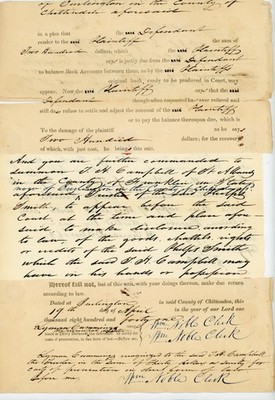 of Burlington in the County of
Chittenden aforesaid
in a plea that the said Defendant
render to the said Plaintiff the sum of
Two Hundred dollars, which the said Plaintiff
says is justly due from the said Defendant
to balance Book Accounts between them, as by the said Plaintiff
original book, ready to be produced in Court, may
appear. Now the said Plaintiff says that the said
Defendant though often requested has ever refused and
still does refuse to settle and adjust the account of the said Plaintiff
or to pay the balance thereupon due, which is
To the damage of the plaintiff as he says
Two Hundred dollars; for the recovery
of which, with just cost, he brings this suit.
And you are further commanded to
summon T. H. Campbell of St Albans
in the County of Franklin
Trustee of
Smith, to appear before the said
Court, at the time and place afore-
said, to make disclosure according
to law of the goods, chattels rights
or credits of the said Phelps Smith
which the said T H Campbell may
have in his hands or possession
Hereof fail not, but of this writ, with your doings thereon, make due return
according to law.
Dated at Burlington in said County of Chittenden, this
19th day of April in the year of our Lord one
thousand eight hundred and forty
Lyman Cummings
Wm Noble Clerk
Wm Noble Clerk
Lyman Cummings recognized to the said T. H. Campbell
the Trustee in the sum of Dollars as surety for
cost of prosecution
before me
Wm Noble Clerk